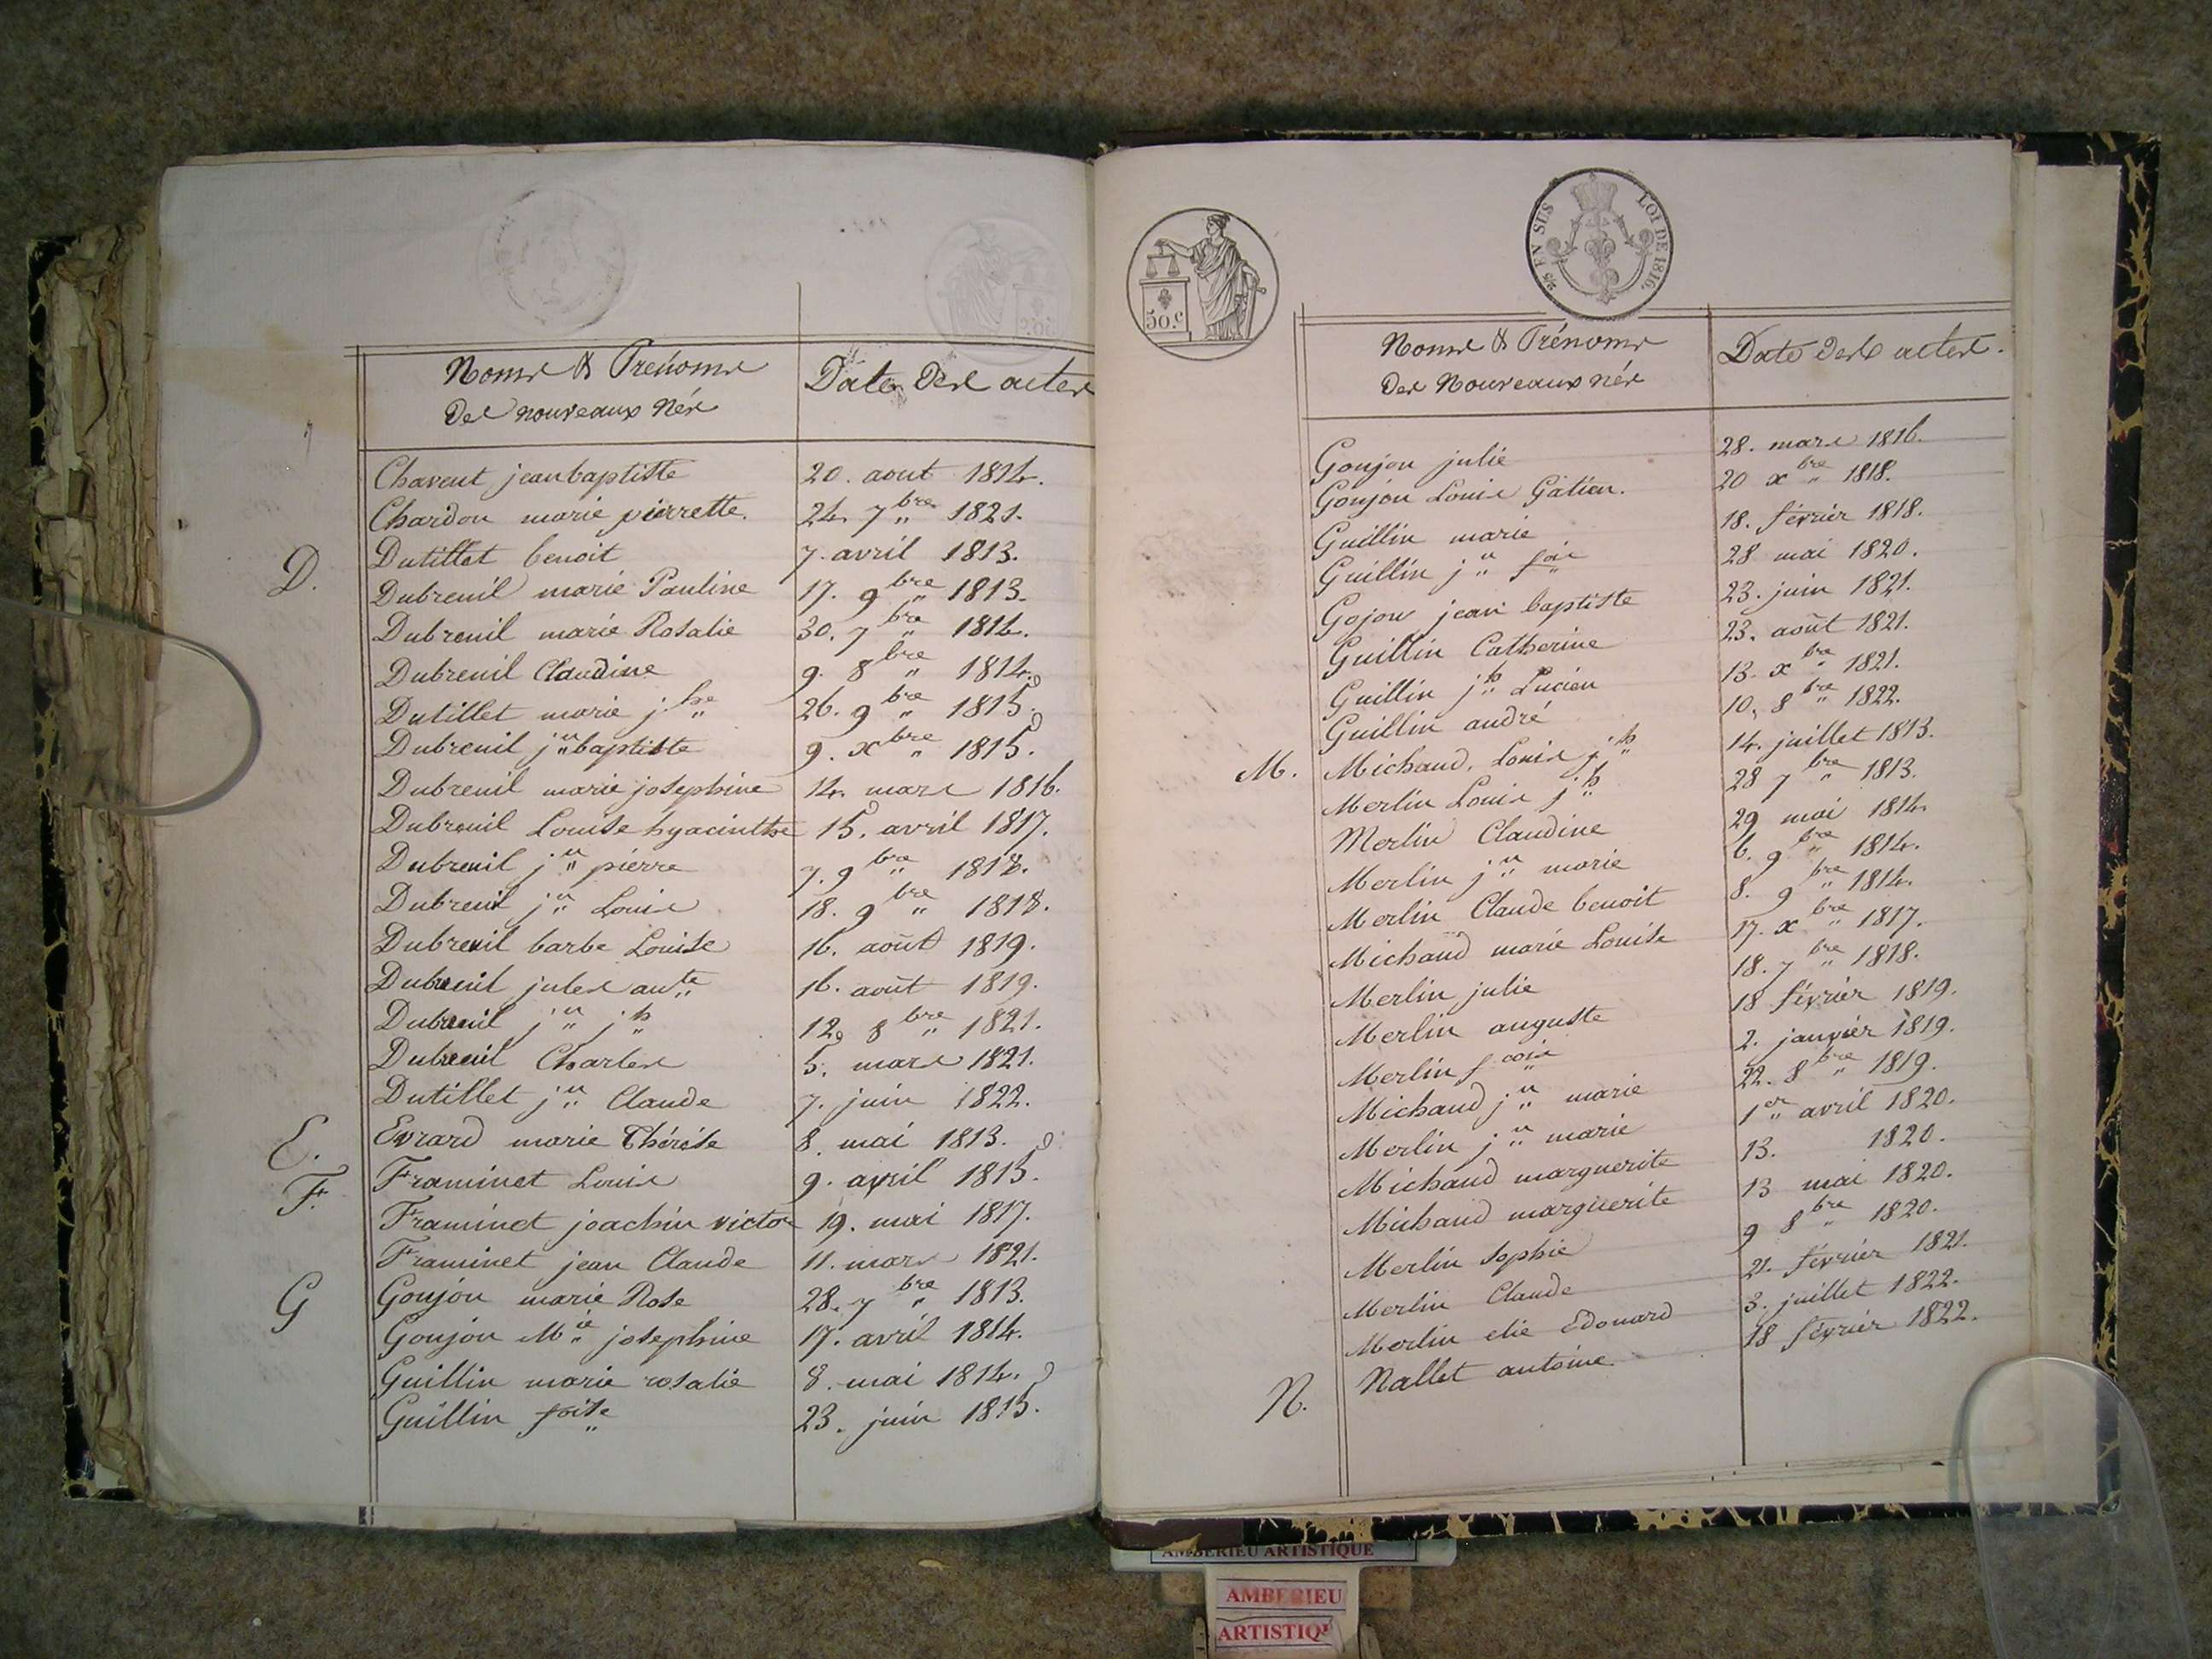 Noms & Prénoms
Des nouveaux Nés
Date des actes
Chavent jean baptiste 20. aout 1814.
Chardon marie pierrette. 24. 7bre 1821.
D. Dutillet benoit 7. avril 1813.
Dubreuil marie Pauline 17. 9bre 1813.
Dubreuil marie Rosalie 30. 7bre 1814.
Dubreuil Claudine 9. 8bre 1814.
Dutillet marie j.he 26. 9bre 1815.
Dubreuil jn baptiste 9. xbre 1815.
Dubreuil marie josephine 14. mars 1816.
Dubreuil Louise hyacinthe 15. avril 1817.
Dubreuil jn pierre 7. 9bre 1818.
Dubreuil jn Louis 18. 9bre 1818.
Dubreuil barbe Louise 16. août 1819.
Dubreuil jules aute 16. août 1819.
Dubreuil jn jh 12. 8bre 1821.
Dubreuil Charles 5. mars 1821.
Dutillet jn Claude 7. juin 1822.
E. Evrard marie Thérèse 8. mai 1813.
F. Framinet Louis 9. avril 1815.
Framinet joachin victor 19. mai 1817.
Framinet jean Claude 11. mars 1821.
G Goujon marie Rose 28. 7bre 1813.
Goujon Mie josephine 17. avril 1814.
Guillin marie rosalie 8. mai 1814.
Guillin foise 23. juin 1815.
50.c
25 EN SUS LOI DE 1816.
Noms & Prénoms
Des Nouveaux nés
Date des actes.
Goujon julie 28. mars 1816.
Goujon Louis Gatien. 20 xbre 1818.
Guillin marie 18. février 1818.
Guillin jn fois 28 mai 1820.
Gojon jean baptiste 23. juin 1821.
Guillin Catherine 23. août 1821.
Guillin jh Lucien 13. xbre 1821.
Guillin andré 10. 8bre 1822.
M. Michaud, Louis jh 14. juillet 1813.
Merlin Louis jh 28 7bre 1813.
Merlin Claudine 29 mai 1814.
Merlin jn marie 6. 9bre 1814.
Merlin Claude benoit 8. 9bre 1814.
Michaud marie Louise 17. xbre 1817.
Merlin julie 18. 7bre 1818.
Merlin auguste 18 février 1819.
Merlin fcois 2. janvier 1819.
Michaud jn marie 22. 8bre 1819.
Merlin jn marie 1er avril 1820.
Michaud marguerite 13. 1820.
Michaud marguerite 13 mai 1820.
Merlin Sophie 9 8bre 1820.
Merlin Claude 21. février 1821.
Merlin elie Edouard 3. juillet 1822.
N. Nallet antoine 18 février 1822.
AMBERIEU ARTISTIQUE
AMBERIEU
ARTISTIQU